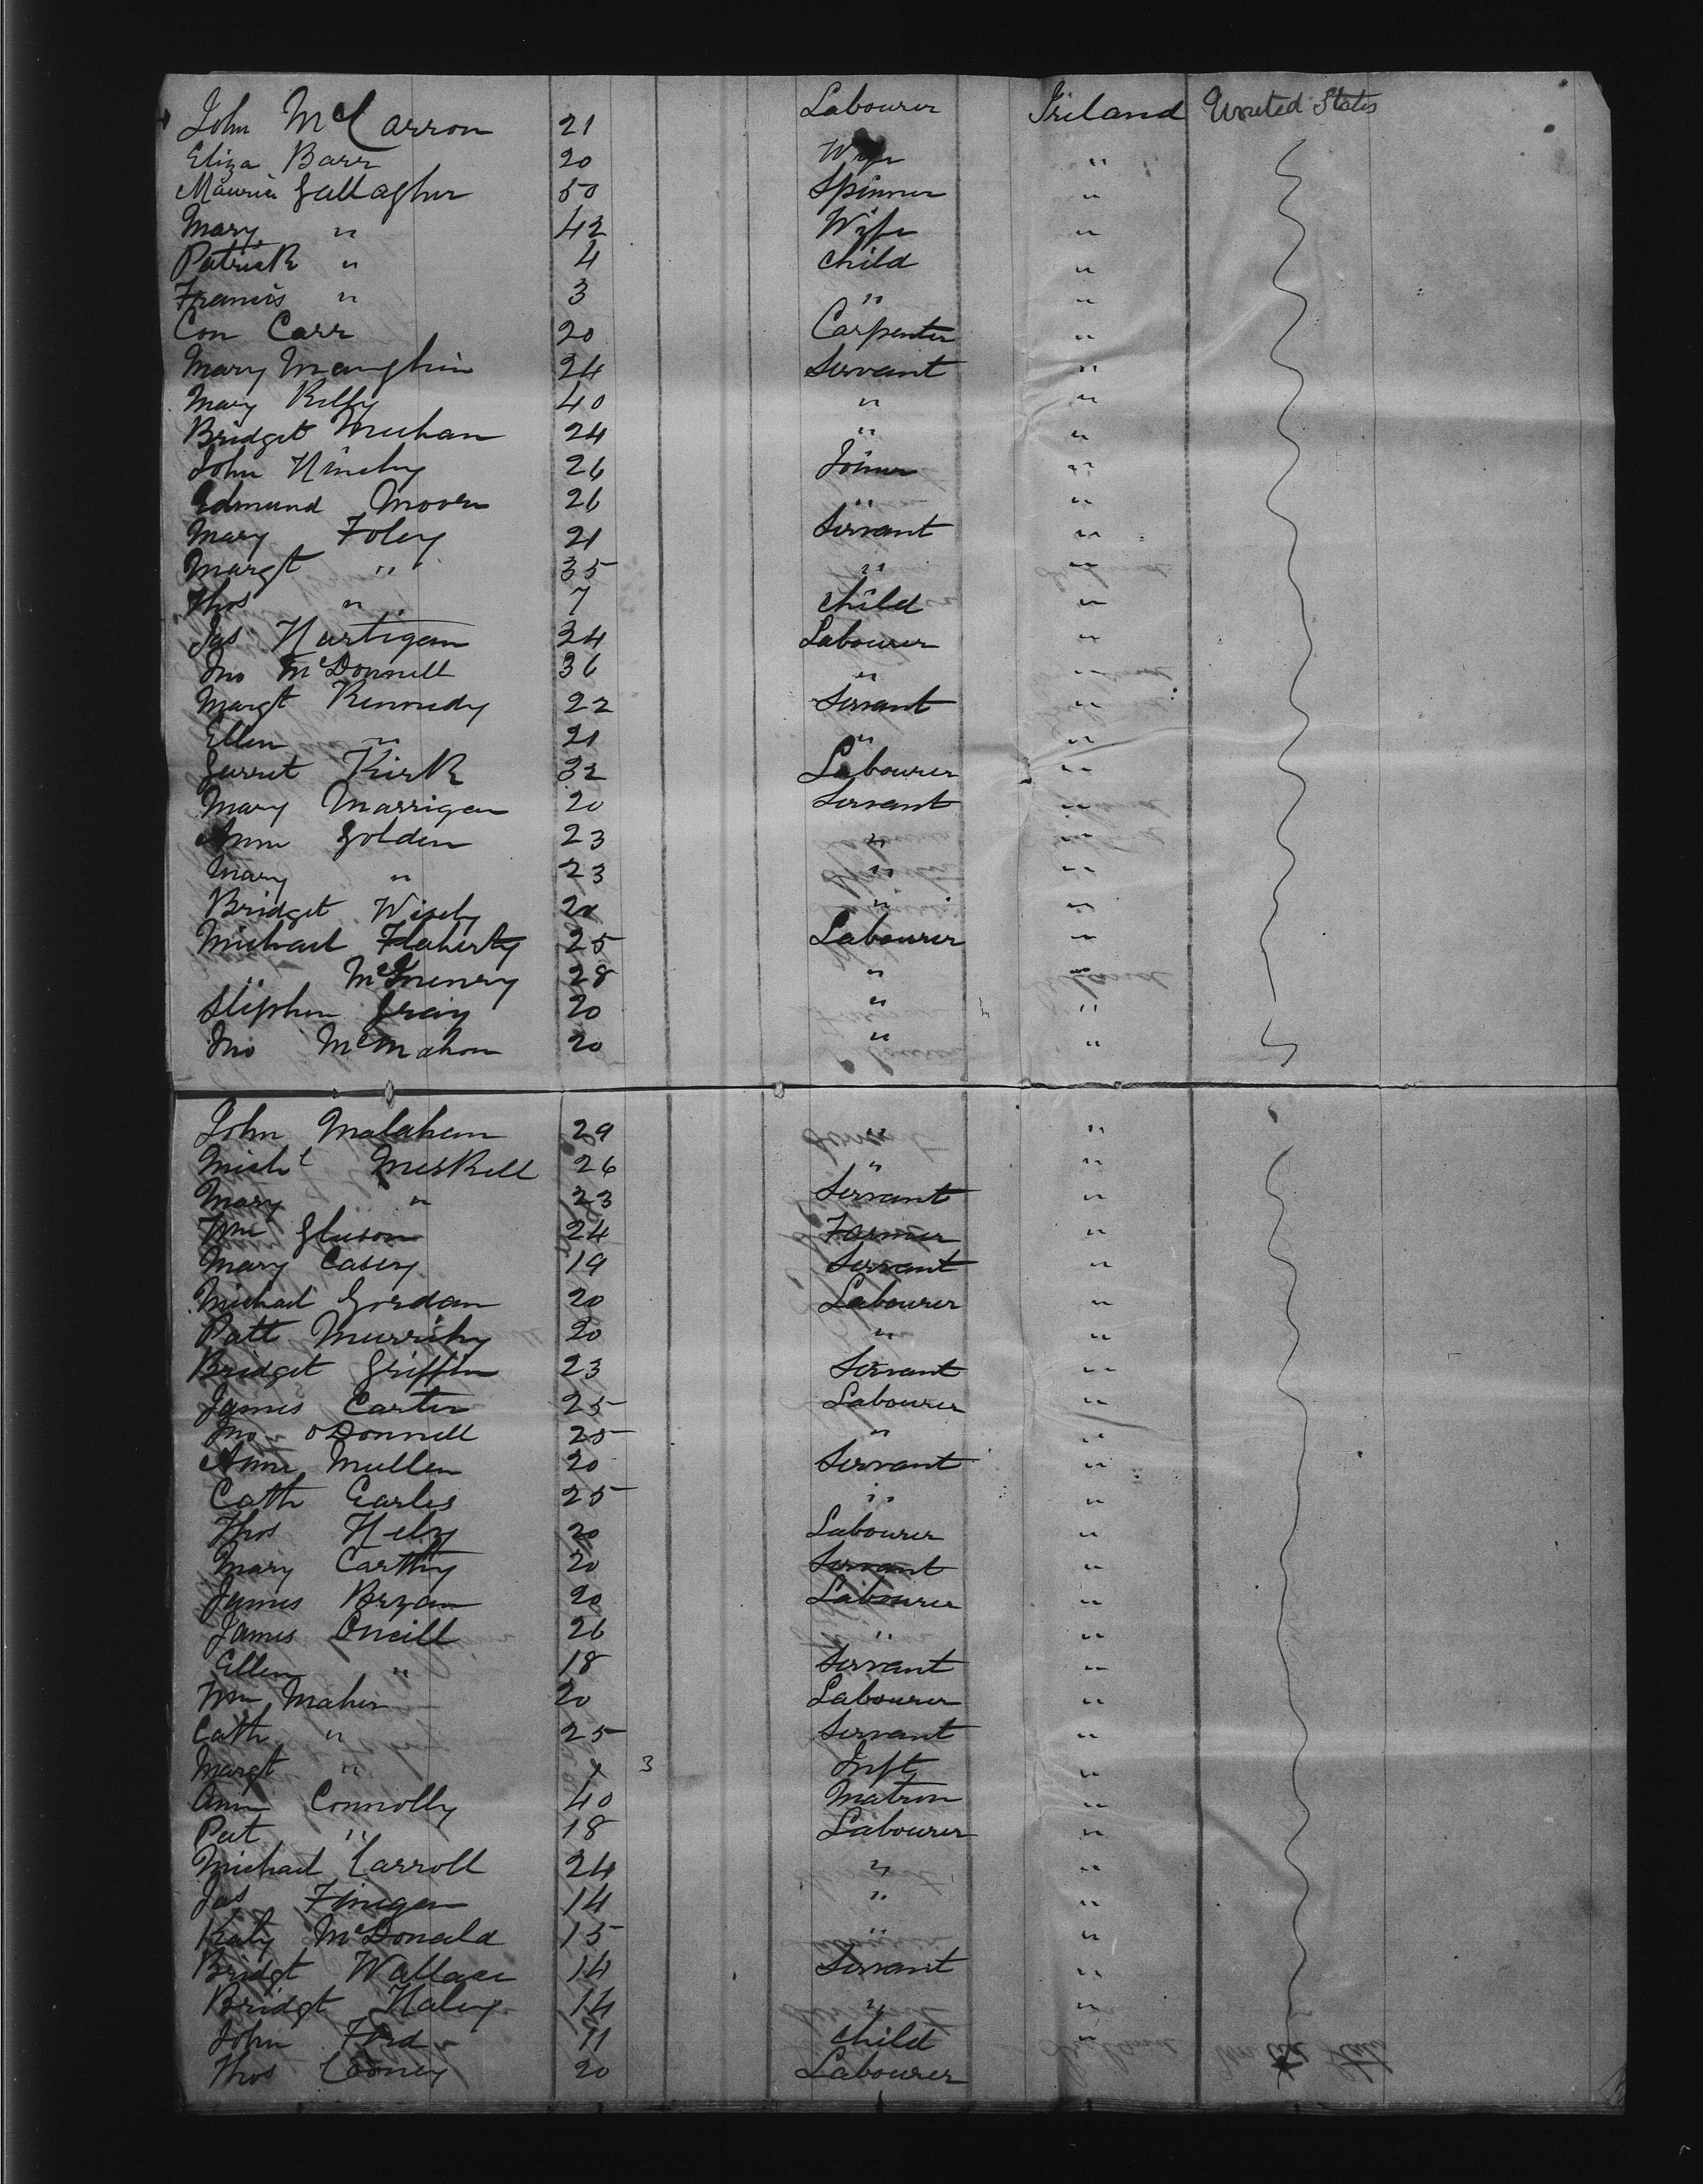 John McCarron 21 Labourer Ireland United States
Eliza Barr 20 Wife "
Maurice Gallagher 50 Spinner "
Mary " 42 Wife "
Patrick " 4 Child "
Francis " 3 " "
Con Carr 20 Carpenter "
Mary Manghin 24 Servant "
Mary Kelly 40 " "
Bridget Meehan 24 " "
John Hinchy 26 Joiner "
Edmund Moore 26 " "
Mary Foley 21 Servant "
Margt " 35 " "
Thos " 7 Child "
Jas Hartigan 24 Labourer "
Jno McDonnell 36 " "
Margt Kennedy 22 Servant "
Ellen " 21 " "
Garret Kirk 32 Labourer "
Mary Marrigan 20 Servant "
Ann Golden 23 " "
Mary " 23 " "
Bridget Wisely 20 " "
Michael Flaherty 25 Labourer "
" McInenry 28 " "
Stephen Gray 20 " "
Jno McMahon 20 " "
John Malahan 29 " "
Michl Meskell 26 " "
Mary " 23 Servant "
Wm Gleeson 24 Farmer "
Mary Casey 19 Servant "
Michael Gordan 20 Labourer "
Patt Murrihy 20 " "
Bridget Griffin 23 Servant "
James Carter 25 Labourer "
Jno ODonnell 25 " "
Anne Mullen 20 Servant "
Cath Earles 25 " "
Thos Hely 20 Labourer "
Mary Carthy 20 Servant "
James Bryan 20 Labourer "
James Oneill 26 " "
Ellen " 18 Servant "
Wm Maher 20 Labourer "
Cath " 25 Servant "
Margt " 3 Inft "
Ann Connolly 40 Matron "
Pat " 18 Labourer "
Michael Carroll 24 " "
Jas Finigan 14 " "
Katy McDonald 15 " "
Bridgt Wallace 14 Servant "
Bridgt Haley 14 " "
John Ford 11 Child "
Thos Cooney 20 Labourer